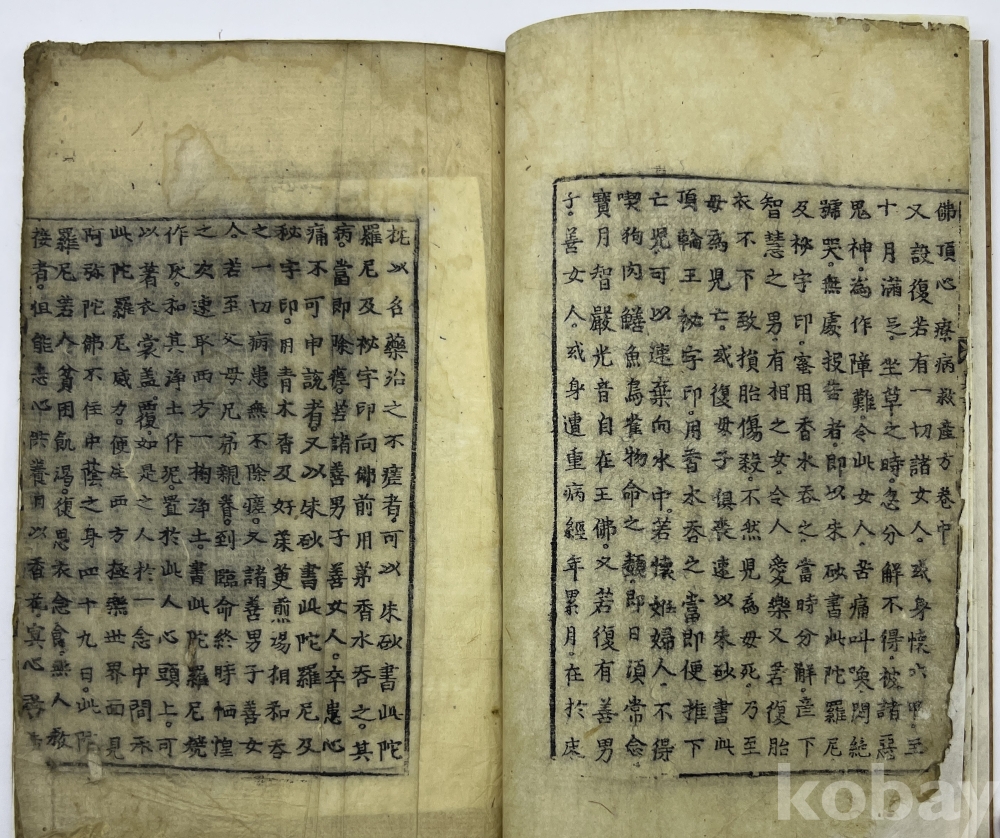 佛頂心療病救產方卷中
又設復若有一切諸女人。或身懷六甲至
十月滿足。坐草之時。忽分解不得。被諸惡
鬼神。為作障難。令此女人。苦痛叫喚悶絕
號哭。無處投告者。即以朱砂書此陀羅尼
及秘字印。密用香水吞之。當時分解。產下
智慧之男。有相之女。令人愛樂又若復胎
衣不下致損胎傷殺。不然兒為母死。乃至
母為兒亡。或復母子俱喪速以朱砂書此
頂輪王秘字印。用香水吞之當即便推下
亡兒。可以速棄向水中。若懷姙婦人。不得
喫狗肉鱔魚為雀物命之類。即日須常念
寶月智嚴光音自在王佛。又若復有善男
子。善女人。或身遭重病經年累月。在於床
枕以名藥治之不瘥者。可以朱砂書此陀
羅尼。及秘字印向佛前用茅香水吞之。其
病。當即除瘥若諸善男子善女人。卒患心
痛不可申說者又以朱砂書此陀羅尼及
秘字印。用青木香及好茱萸煎湯相和吞
之一切病患無不除瘥。又諸善男子善女
人。若至父母兄弟親眷。到臨命終時恓惶
之次速取西方一掬淨土。書此陀羅尼燒
作灰。和其淨土作泥。置於此人心頭上。可
以著衣裳蓋覆。如是之人於一念中間承
此陀羅尼威力。便生西方極樂世界面見
阿弥陀佛不住中蔭之身四十九日。此陀
羅尼若人貧困飢渴。復思衣念食。無人救
接者。但能志心供養日以香花冥心
kobay